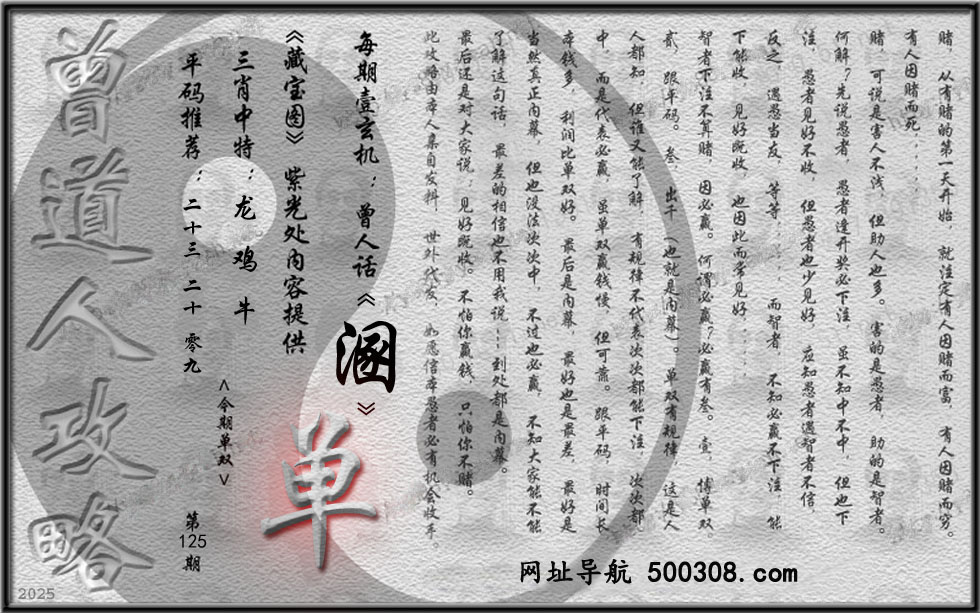 赌，从有赌的第一天开始，就注定有人因赌而富，有人因赌而穷。
有人因赌而死......
赌，可说是害人不浅，但助人也多。害的是愚者，助的是智者。
何解？先说愚者，愚者逢开奖必下注，虽不知中不中，但也下
注，愚者见好不收，但愚者也少见好，应知愚者遇智者不信，
反之，遇愚当友，等等......而智者，不知必赢不下注，能
下能收，见好既收，也因此而常见好....
智者下注不算赌，因必赢。何谓必赢？必赢有叁。壹，博单双，
贰，跟平码。叁，出千（也就是内幕）。单双有规律，这是人
人都知，但谁又能了解，有规律不代表次次都能下注，次次都
中，而是代表必赢，虽单双赢钱慢，但可靠。跟平码，时间长，
本钱多，利润比单双好。最后是内幕，最好也是最差，最好是
当然真正内幕，但也没法次次中，不过也必赢，不知大家能不能
了解这句话，最差的相信也不用我说...到处都是内幕。
最后还是对大家说：见好既收。不怕你赢钱，只怕你不赌。
此攻略由本人集自发料，世外代友，如愿信本愚者必有机会收手。
每期壹玄机：曾人话《溷》
《藏宝图》紫光处内容提供
三肖中特：龙 鸡 牛
平码推荐：二十三 二十 零九
<今期单双>
单
第125期
曾道人攻略
网址导航 500308.com
2025